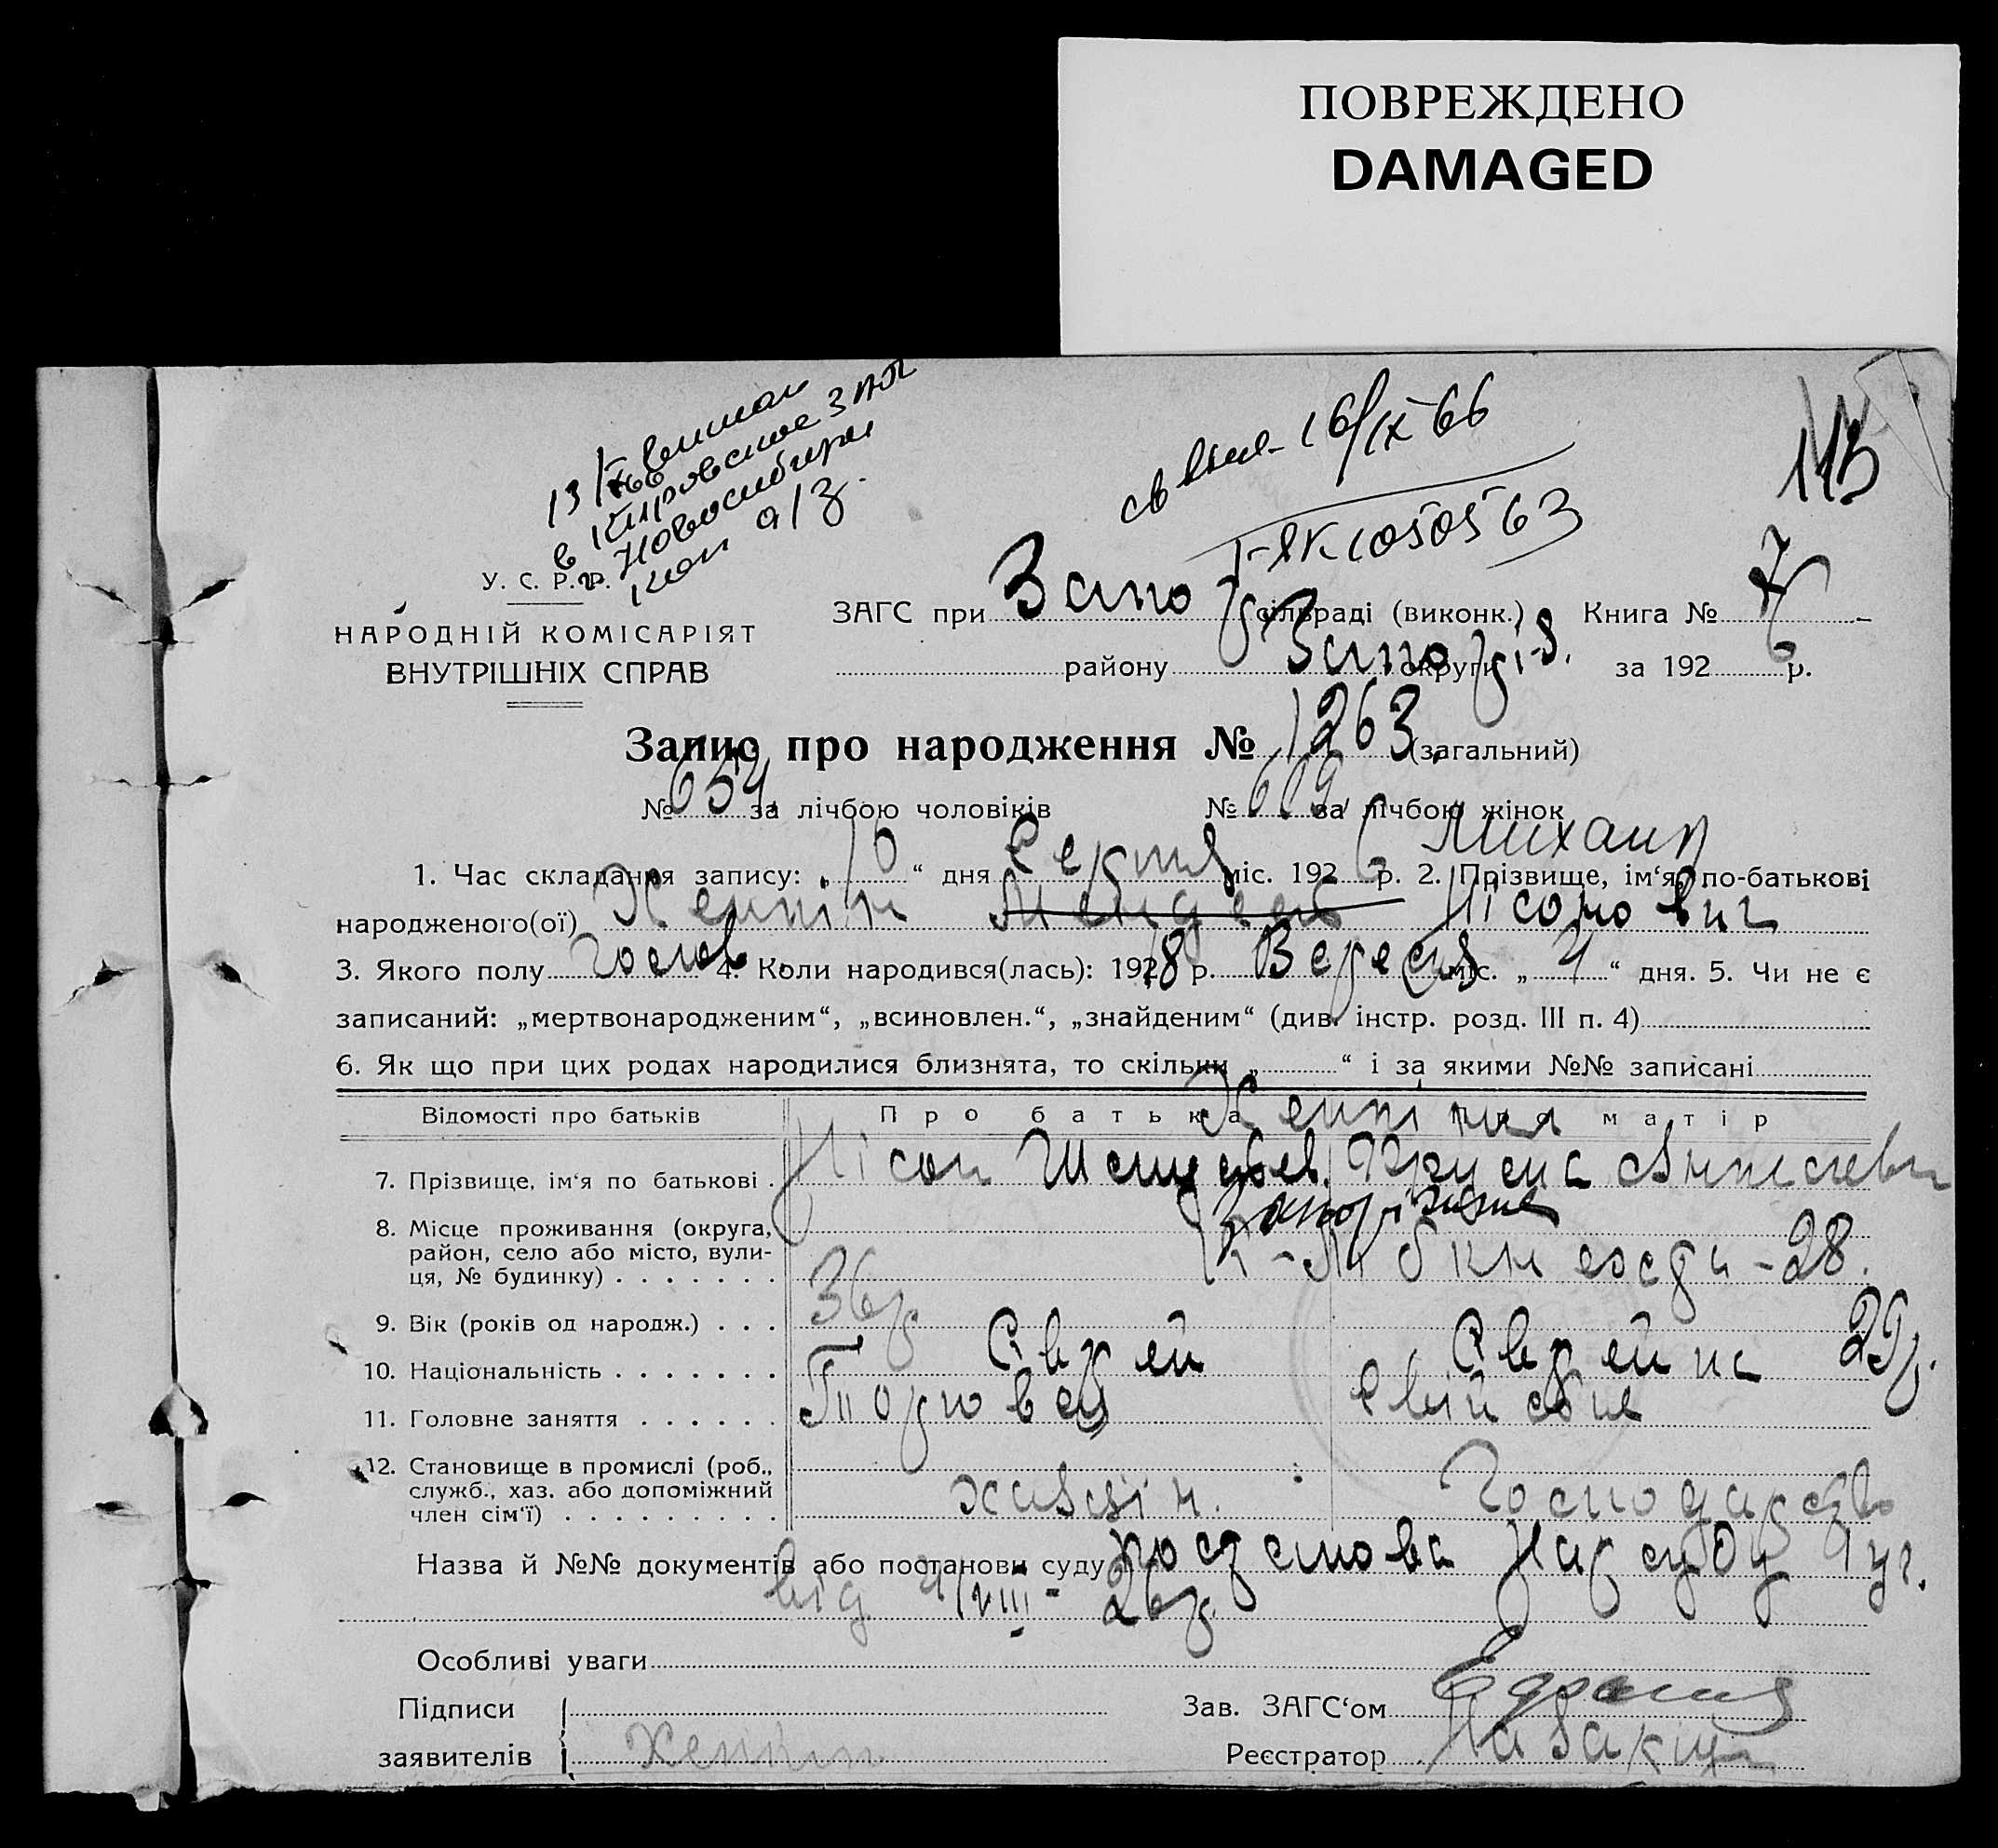 ПОВРЕЖДЕНО
DAMAGED
в Кировское
Новосибирск
16/IX 66
113
У. С. Р. Р.
НАРОДНІЙ КОМІСАРІЯТ
ВНУТРІШНІХ СПРАВ
ЗАГС при Запор сільраді (виконк.) Книга № 7
району Запор округи за 1926 р.
Запис про народження № 1263 (загальний)
№ 654 за лічбою чоловіків № 609 за лічбою жінок
Михаил
1. Час складання запису: „ 10 “ дня міс. 1926 р. 2. Прізвище, ім‘я, по-батькові
народженого(ої) Хенкін Мендель Нісонович
3. Якого полу чолов 4. Коли народився(лась): 1918 р. Вересня міс. „ 4 “ дня. 5. Чи не є
записаний: „мертвонародженим“, „всиновлен.“, „знайденим“ (див. інстр. розд. III п. 4)
6. Як що при цих родах народилися близнята, то скільки „ “ і за якими №№ записані
Відомості про батьків Про батька Про матір
Хенкіни
7. Прізвище, ім‘я по батькові Нісон
8. Місце проживання (округа, район, село або місто, вулиця, № будинку) Запоріжжя
К-Лібкнехта - 28.
9. Вік (років од народж.) 36р 29р.
10. Національність Єврей Єврейка
11. Головне заняття Торговец
12. Становище в промислі (роб., служб., хаз. або допоміжний член сім‘ї) хазяїн. Господарство
Назва й №№ документів або постанови суду постанова Нарсуду 4 уч.
від 4/VIII - 26р.
Особливі уваги
Підписи
заявителів Хенкин
Зав. ЗАГС‘ом
Реєстратор